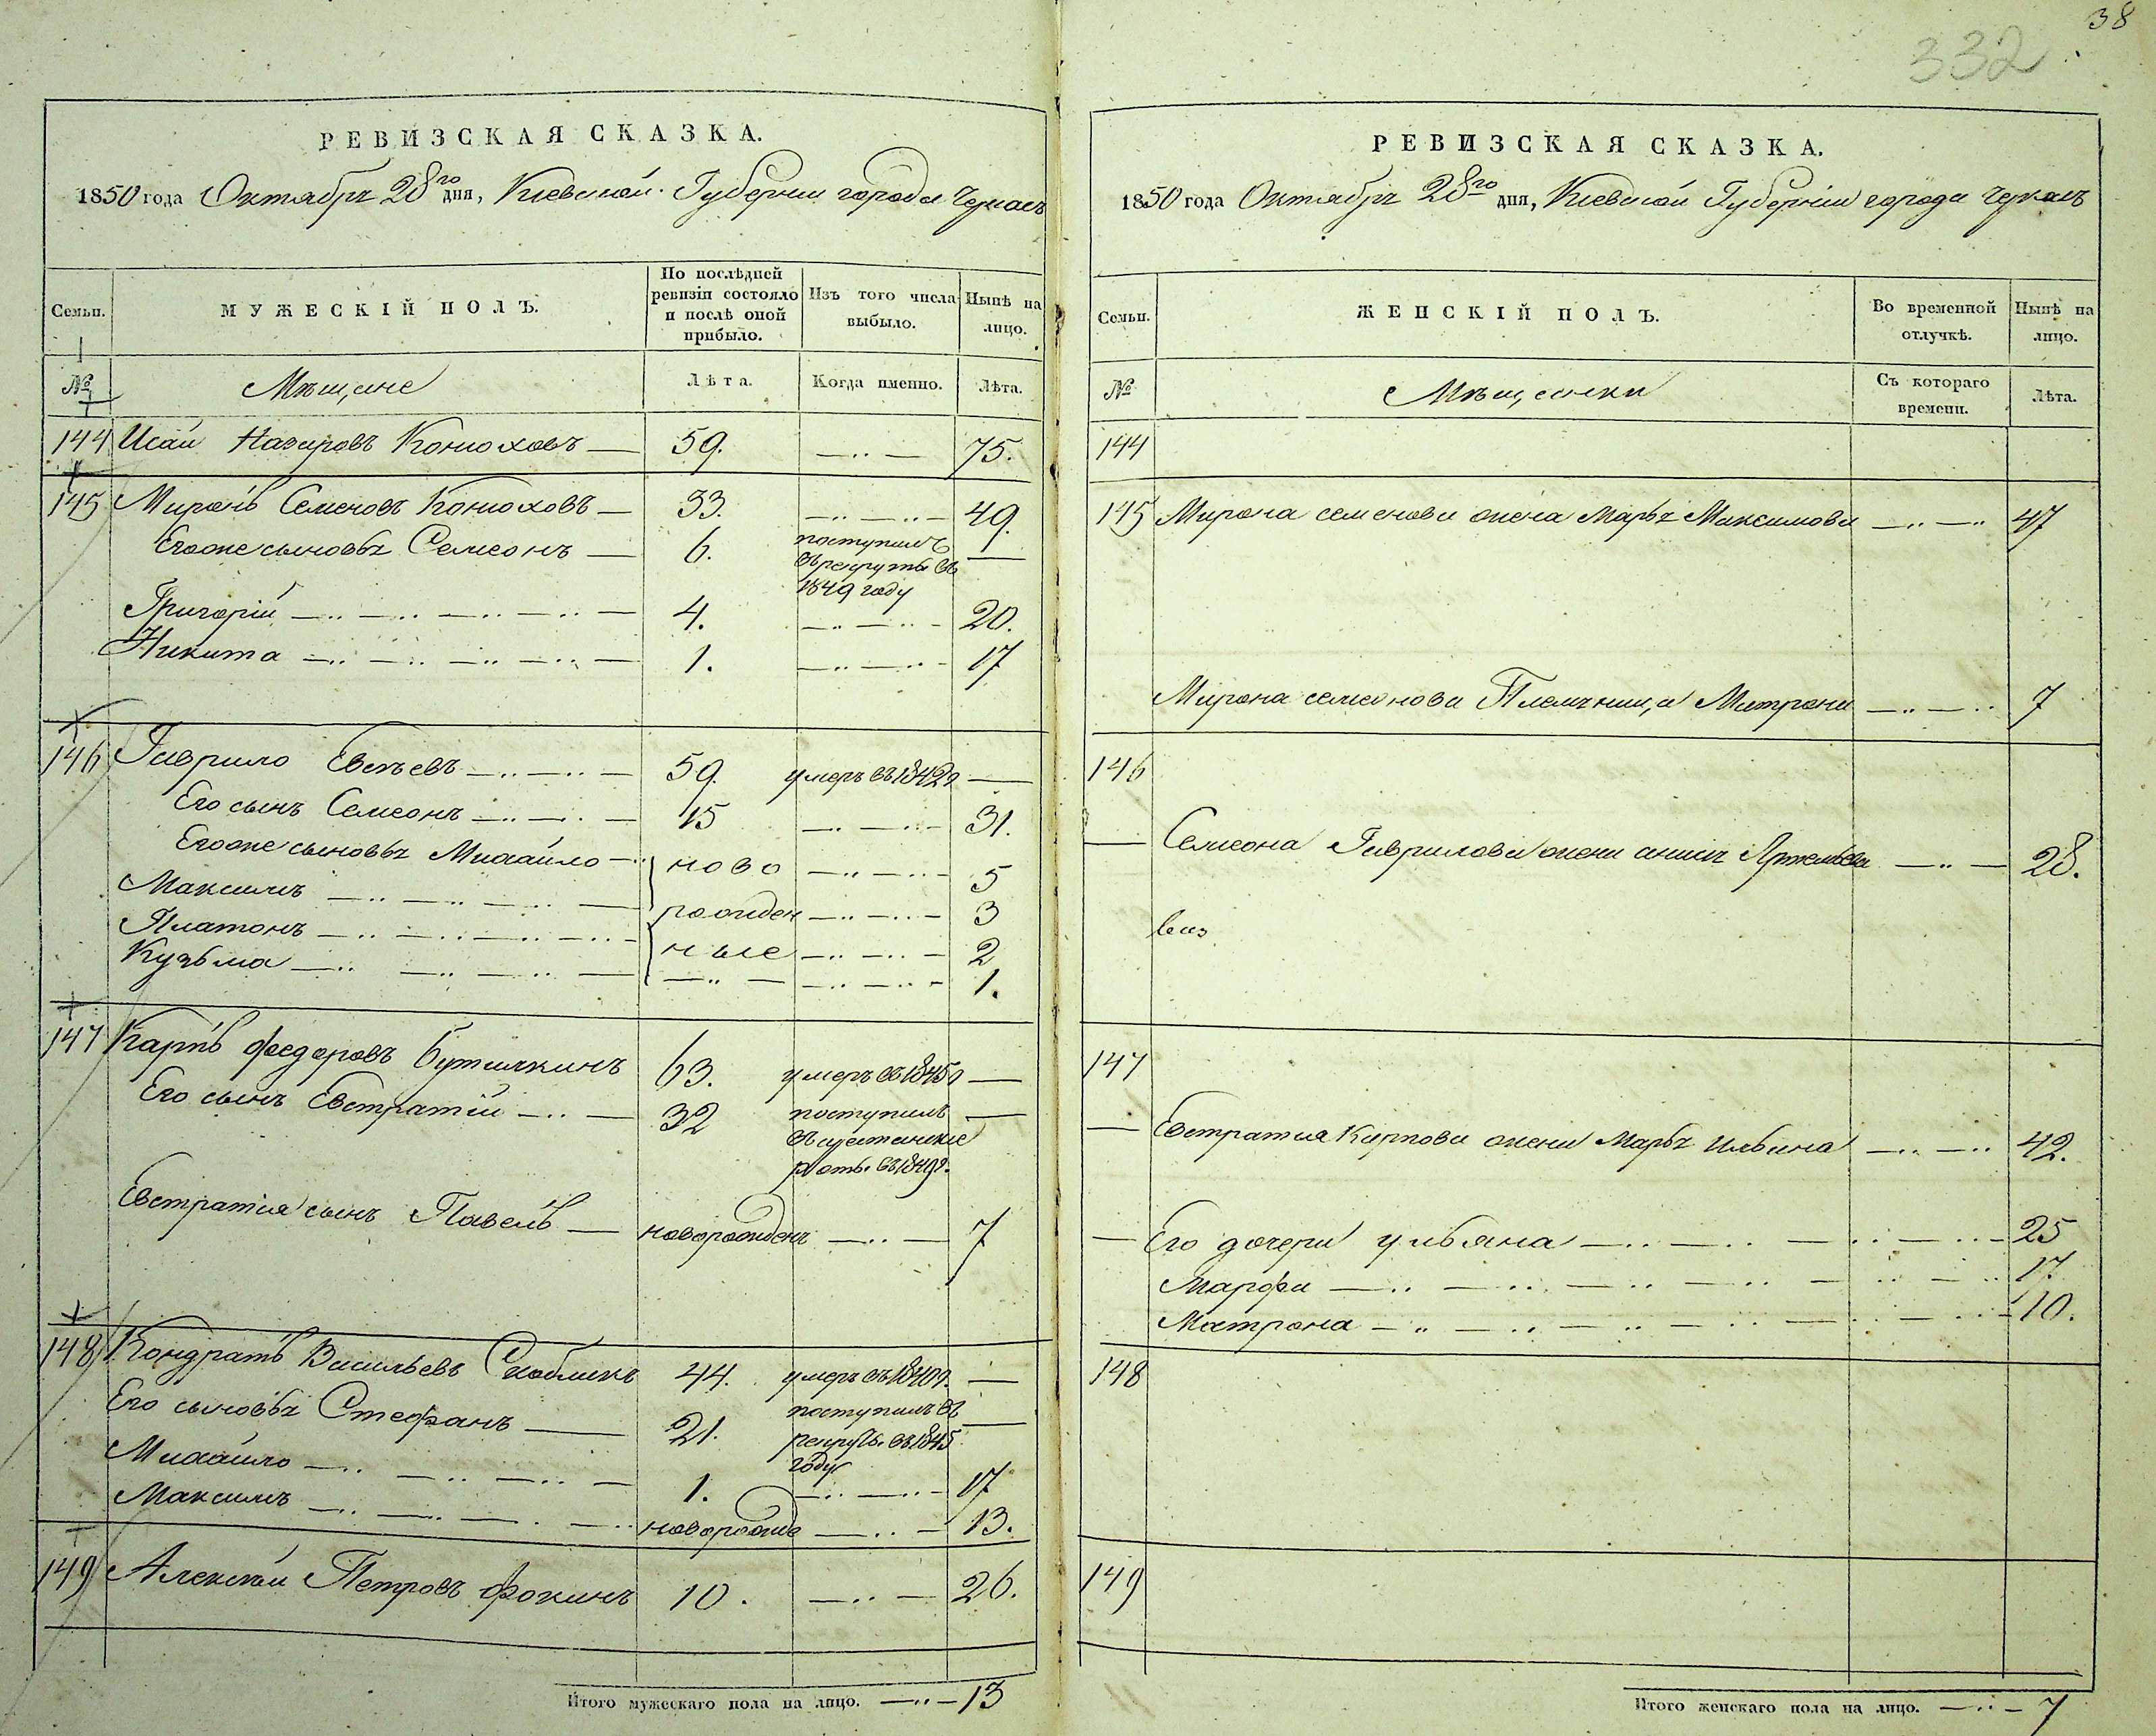 38
332
РЕВИЗСКАЯ СКАЗКА.
1850 года Октября 28го дня, Киевской Губернии города Черкасъ
Семьи.
МУЖЕСКІЙ ПОЛЪ.
По послѣдней ревизіи состояло и послѣ оной прибыло.
Изъ того числа выбыло.
Нынѣ на лицо.
№
Мѣщане
Лѣта.
Когда именно.
Лѣта.
144 Исай Назаровъ Конюховъ 59. 75.
145 Миронъ Семеновъ Конюховъ 33. 49.
Егоже сыновья Семеонъ 6. поступилъ
въ рекруты въ
1849 году
Григорій 4. 20.
Никита 1. 17
146 Гаврило Евсѣевъ 59. умеръ въ 1842г
Его сынъ Семеонъ 15 31.
Егоже сыновья Михайло ново 5
Максимъ рожден 3
Платонъ ные 2
Кузьма 1.
147 Карпъ Федоровъ Бутылкинъ 63. умеръ въ 1845г
Его сынъ Евстратій 32 поступилъ
въ арестанскіе
роты въ 1849г.
Евстратія сынъ Павелъ новорожденъ 7
148 Кондратъ Васильевъ Скобликъ 44. умеръ въ 1840г.
Его сыновья Стефанъ 21. поступилъ въ
рекруты въ 1845
году
Михайло 1. 17
Максимъ новорожде 13.
149 Алексѣй Петровъ Фокинъ 10. 26.
Итого мужескаго пола на лицо. 13
РЕВИЗСКАЯ СКАЗКА.
1850 года Октября 28го дня, Киевской Губерніи города Черкасъ
Семьи.
ЖЕНСКІЙ ПОЛЪ.
Во временной отлучкѣ.
Нынѣ на лицо.
№
Мѣщанки
Съ котораго времени.
Лѣта.
144
145 Мирона семенова жена Марья Максимова 47
Мирона семенова Племяница Матрона 7
146
Семеона Гаврилова жена Артемьева 28.
147
Евстратія Карпова жена Марья Ильина 42.
Его дочери Ульяна 25
Марфа 17.
Матрона 10.
148
149
Итого женскаго пола на лицо. 7